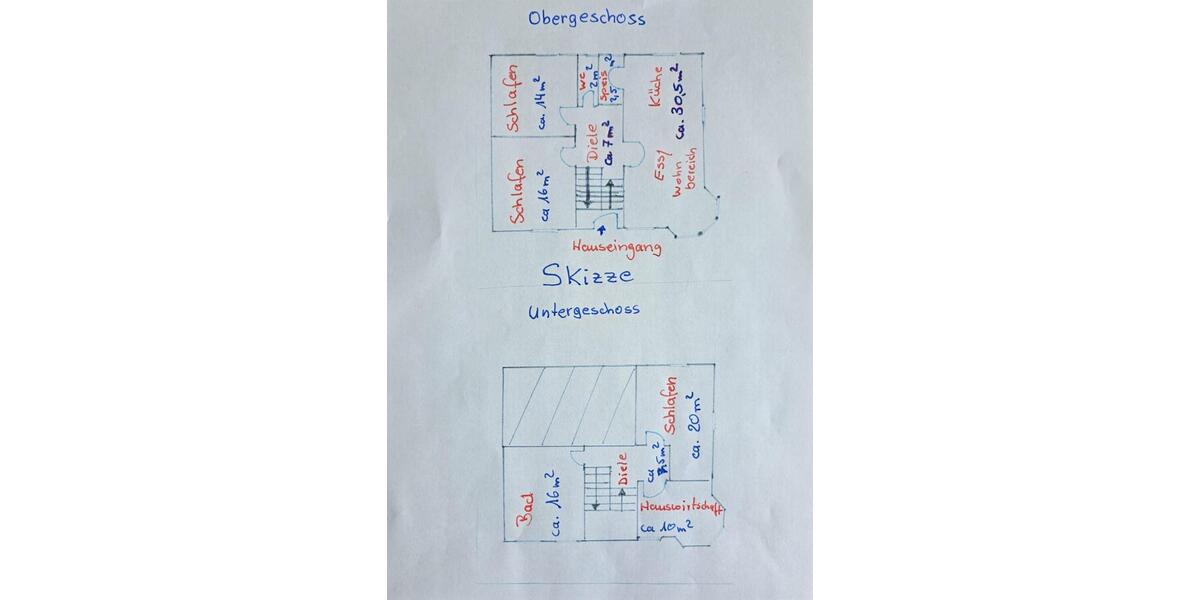 Obergeschoss
Schlafen
ca. 14 m²
WC
2 m²
Speis
2,5 m²
Küche
ca. 30,5 m²
Diele
ca 7 m²
Schlafen
ca 16 m²
Ess/
Wohn
bereich
Hauseingang
Skizze
Untergeschoss
Schlafen
ca. 20 m²
Diele
ca
Bad
ca. 16 m²
Hauswirtschaft
ca 10 m²